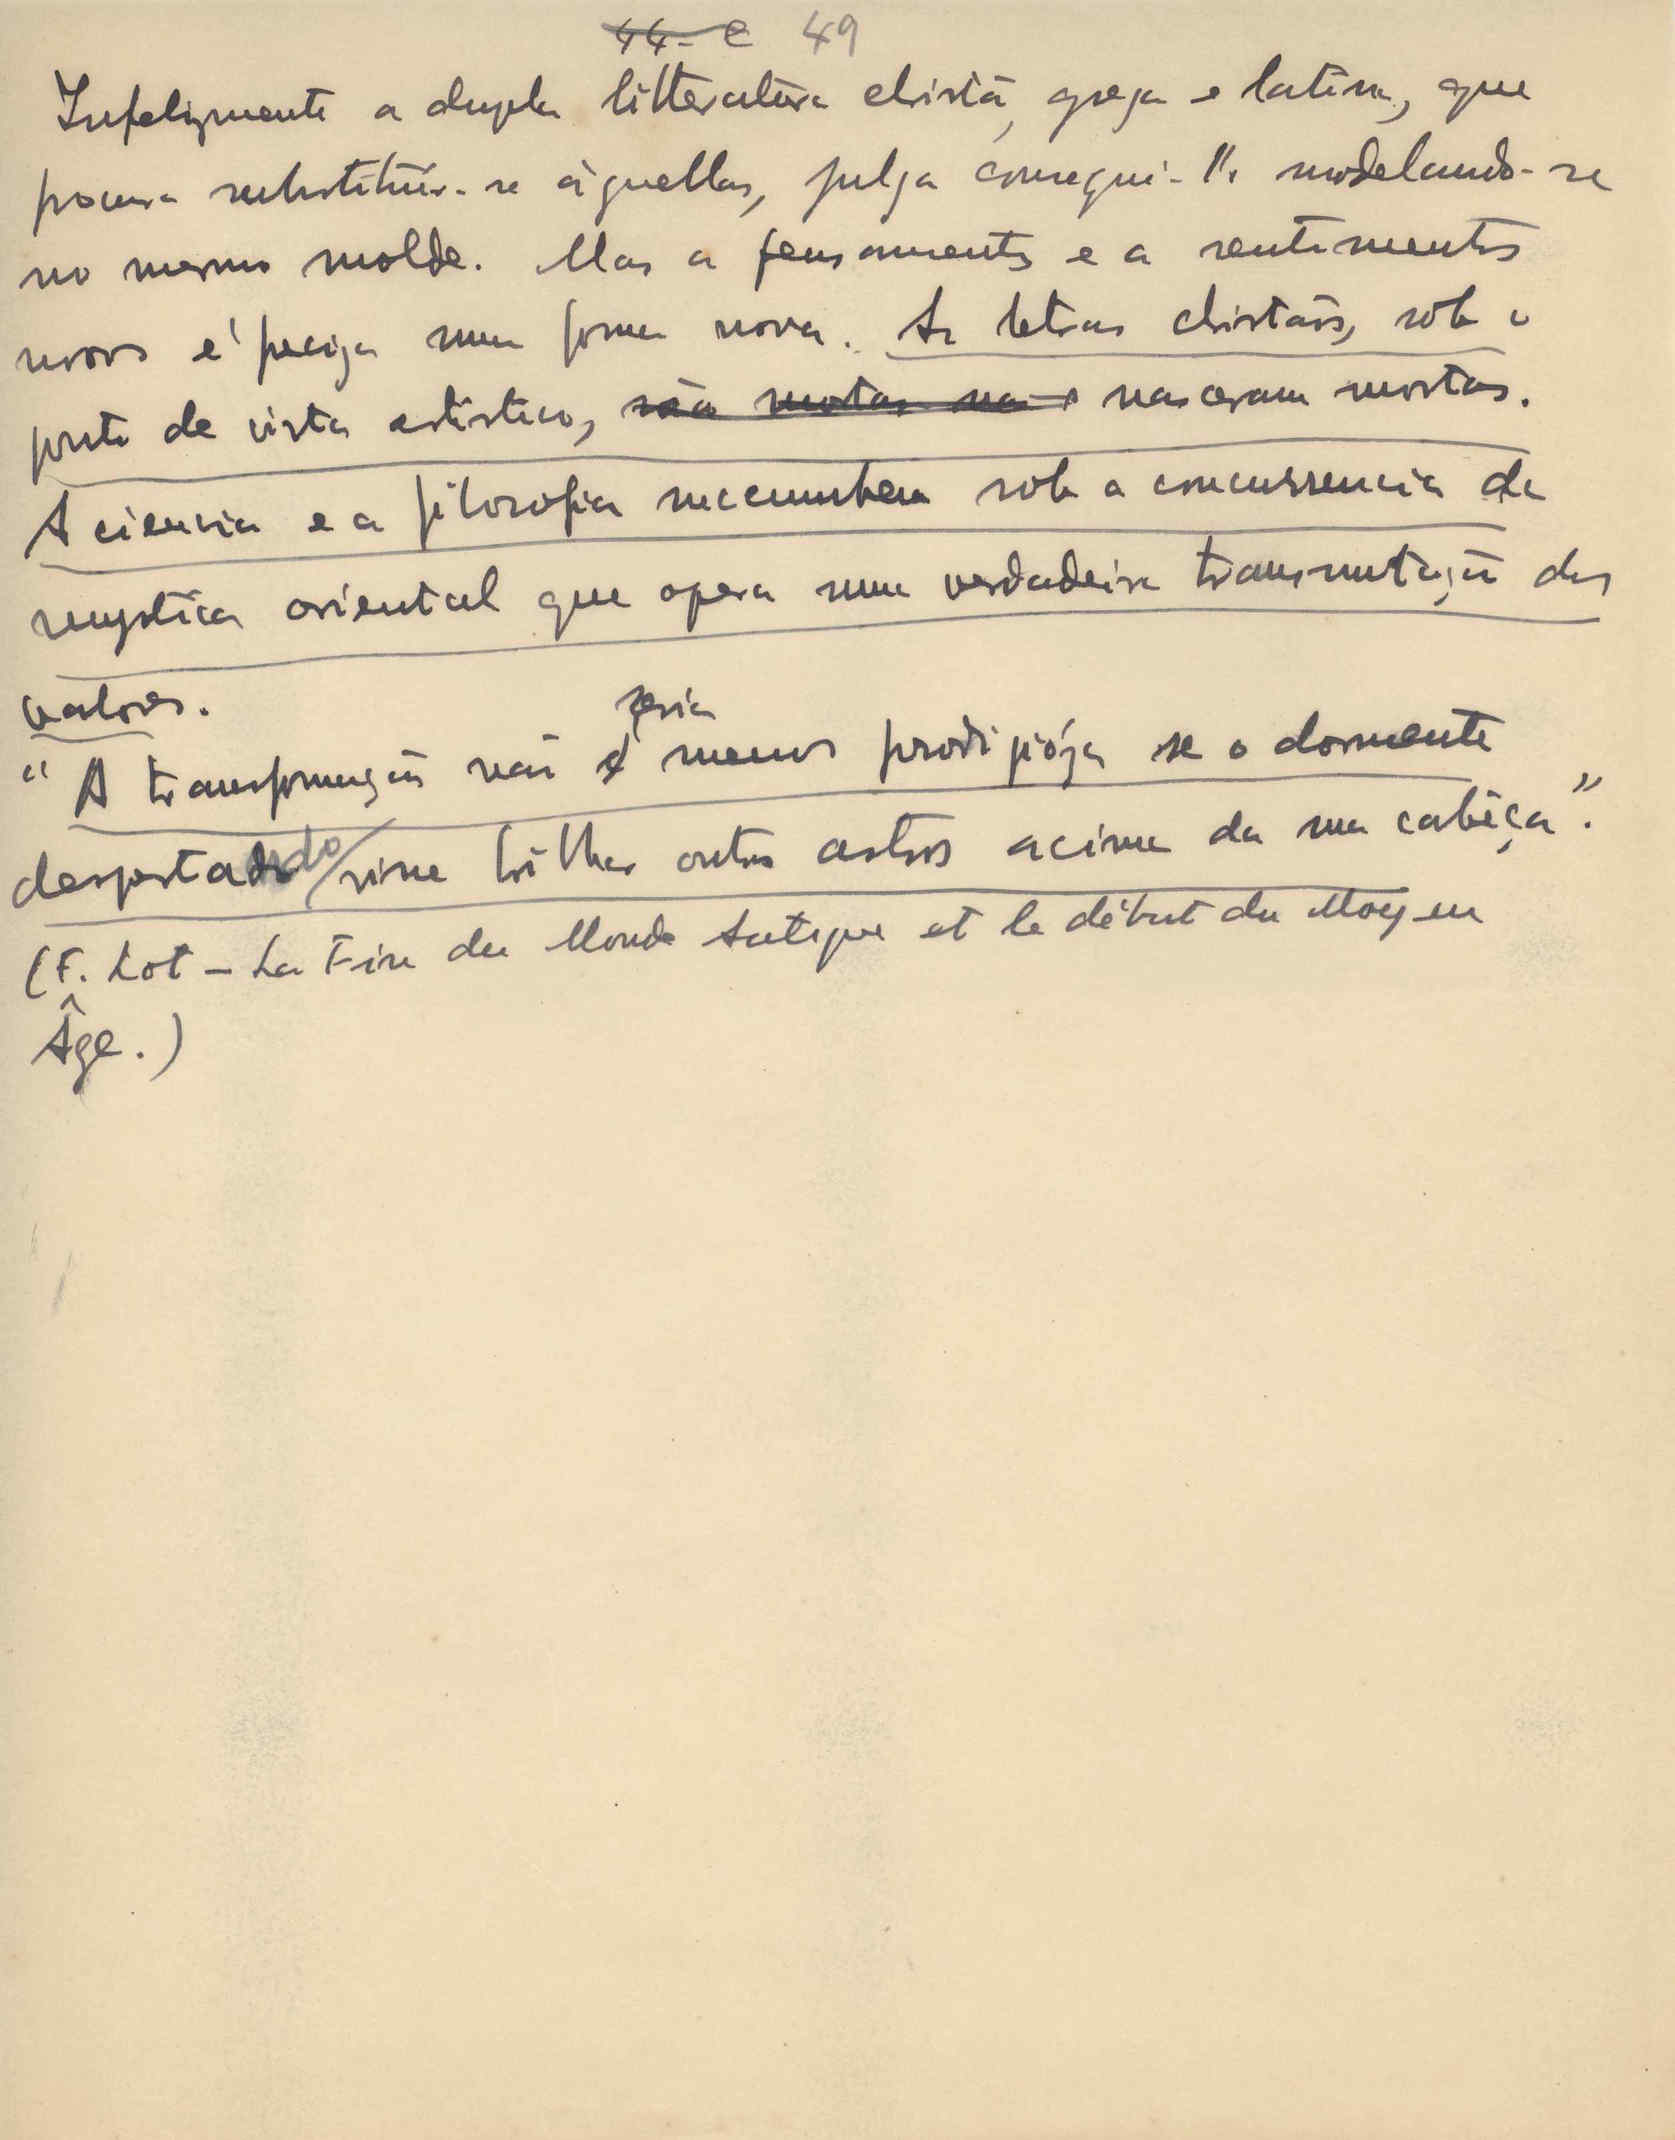 44-C 49
Infelizmente a dupla litteratura christã, grega e latina, que
procura substituir-se áquellas, julga consegui-lo modelando-se
no mesmo molde. Mas a pensamentos e a sentimentos
novos é preciza uma forma nova. As letras christãs, sob o
ponto de vista artistico, são mortas na nasceram mortas.
A ciencia e a filosofia succumbem sob a concurrencia da
mystica oriental que opera uma verdadeira transmutação dos
valores.
seria
"A transformação não é menos prodigióza se o dormente
despertado visse brilhar outros astros acima da sua cabêça".
(F. Lot - La Fin du Monde Antique et le début du Moyen
Âge.)